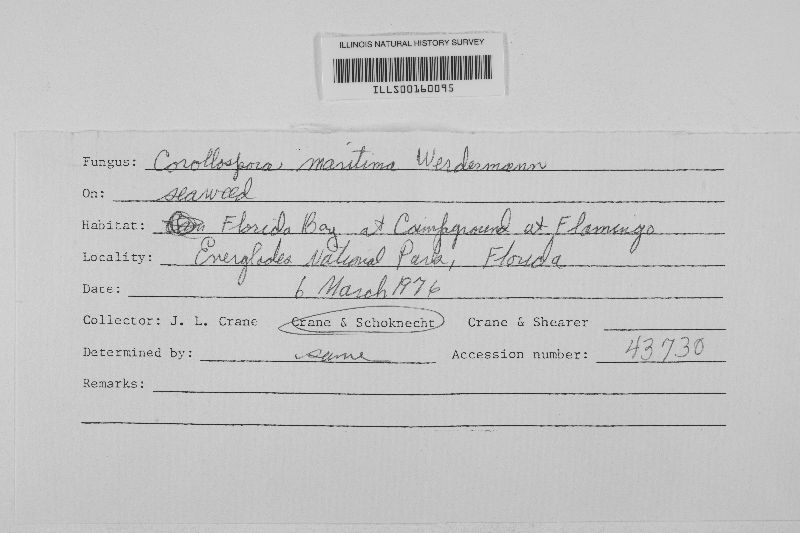 ILLINOIS NATURAL HISTORY SURVEY
ILLS00160095
Fungus: Corollospora maritima Werdermann
On: seaweed
Habitat: Florida Bay at Campground at Flamingo
Locality: Everglades National Park, Florida
Date: 6 March 1976
Collector: J. L. Crane Crane & Schoknecht Crane & Shearer
Determined by: same Accession number: 43730
Remarks: